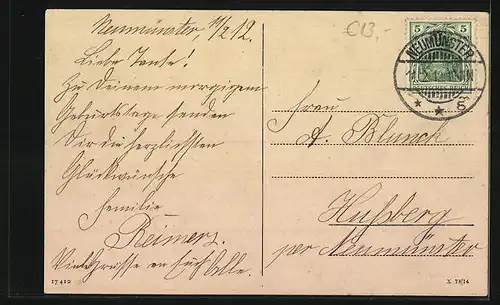 Neumünster, 11/2 12.
Liebe Tante!
Zu Deinem morgigem
Geburtstage senden
Dir die herzlichsten
Glückwünsche
Familie
Reimers.
Viele Grüsse an Euch Alle.
17412
€13,-
5 5
NEUMÜNSTER
* * c
Frau
A. Blunck
Hußberg
per Neumünster
X 78/14